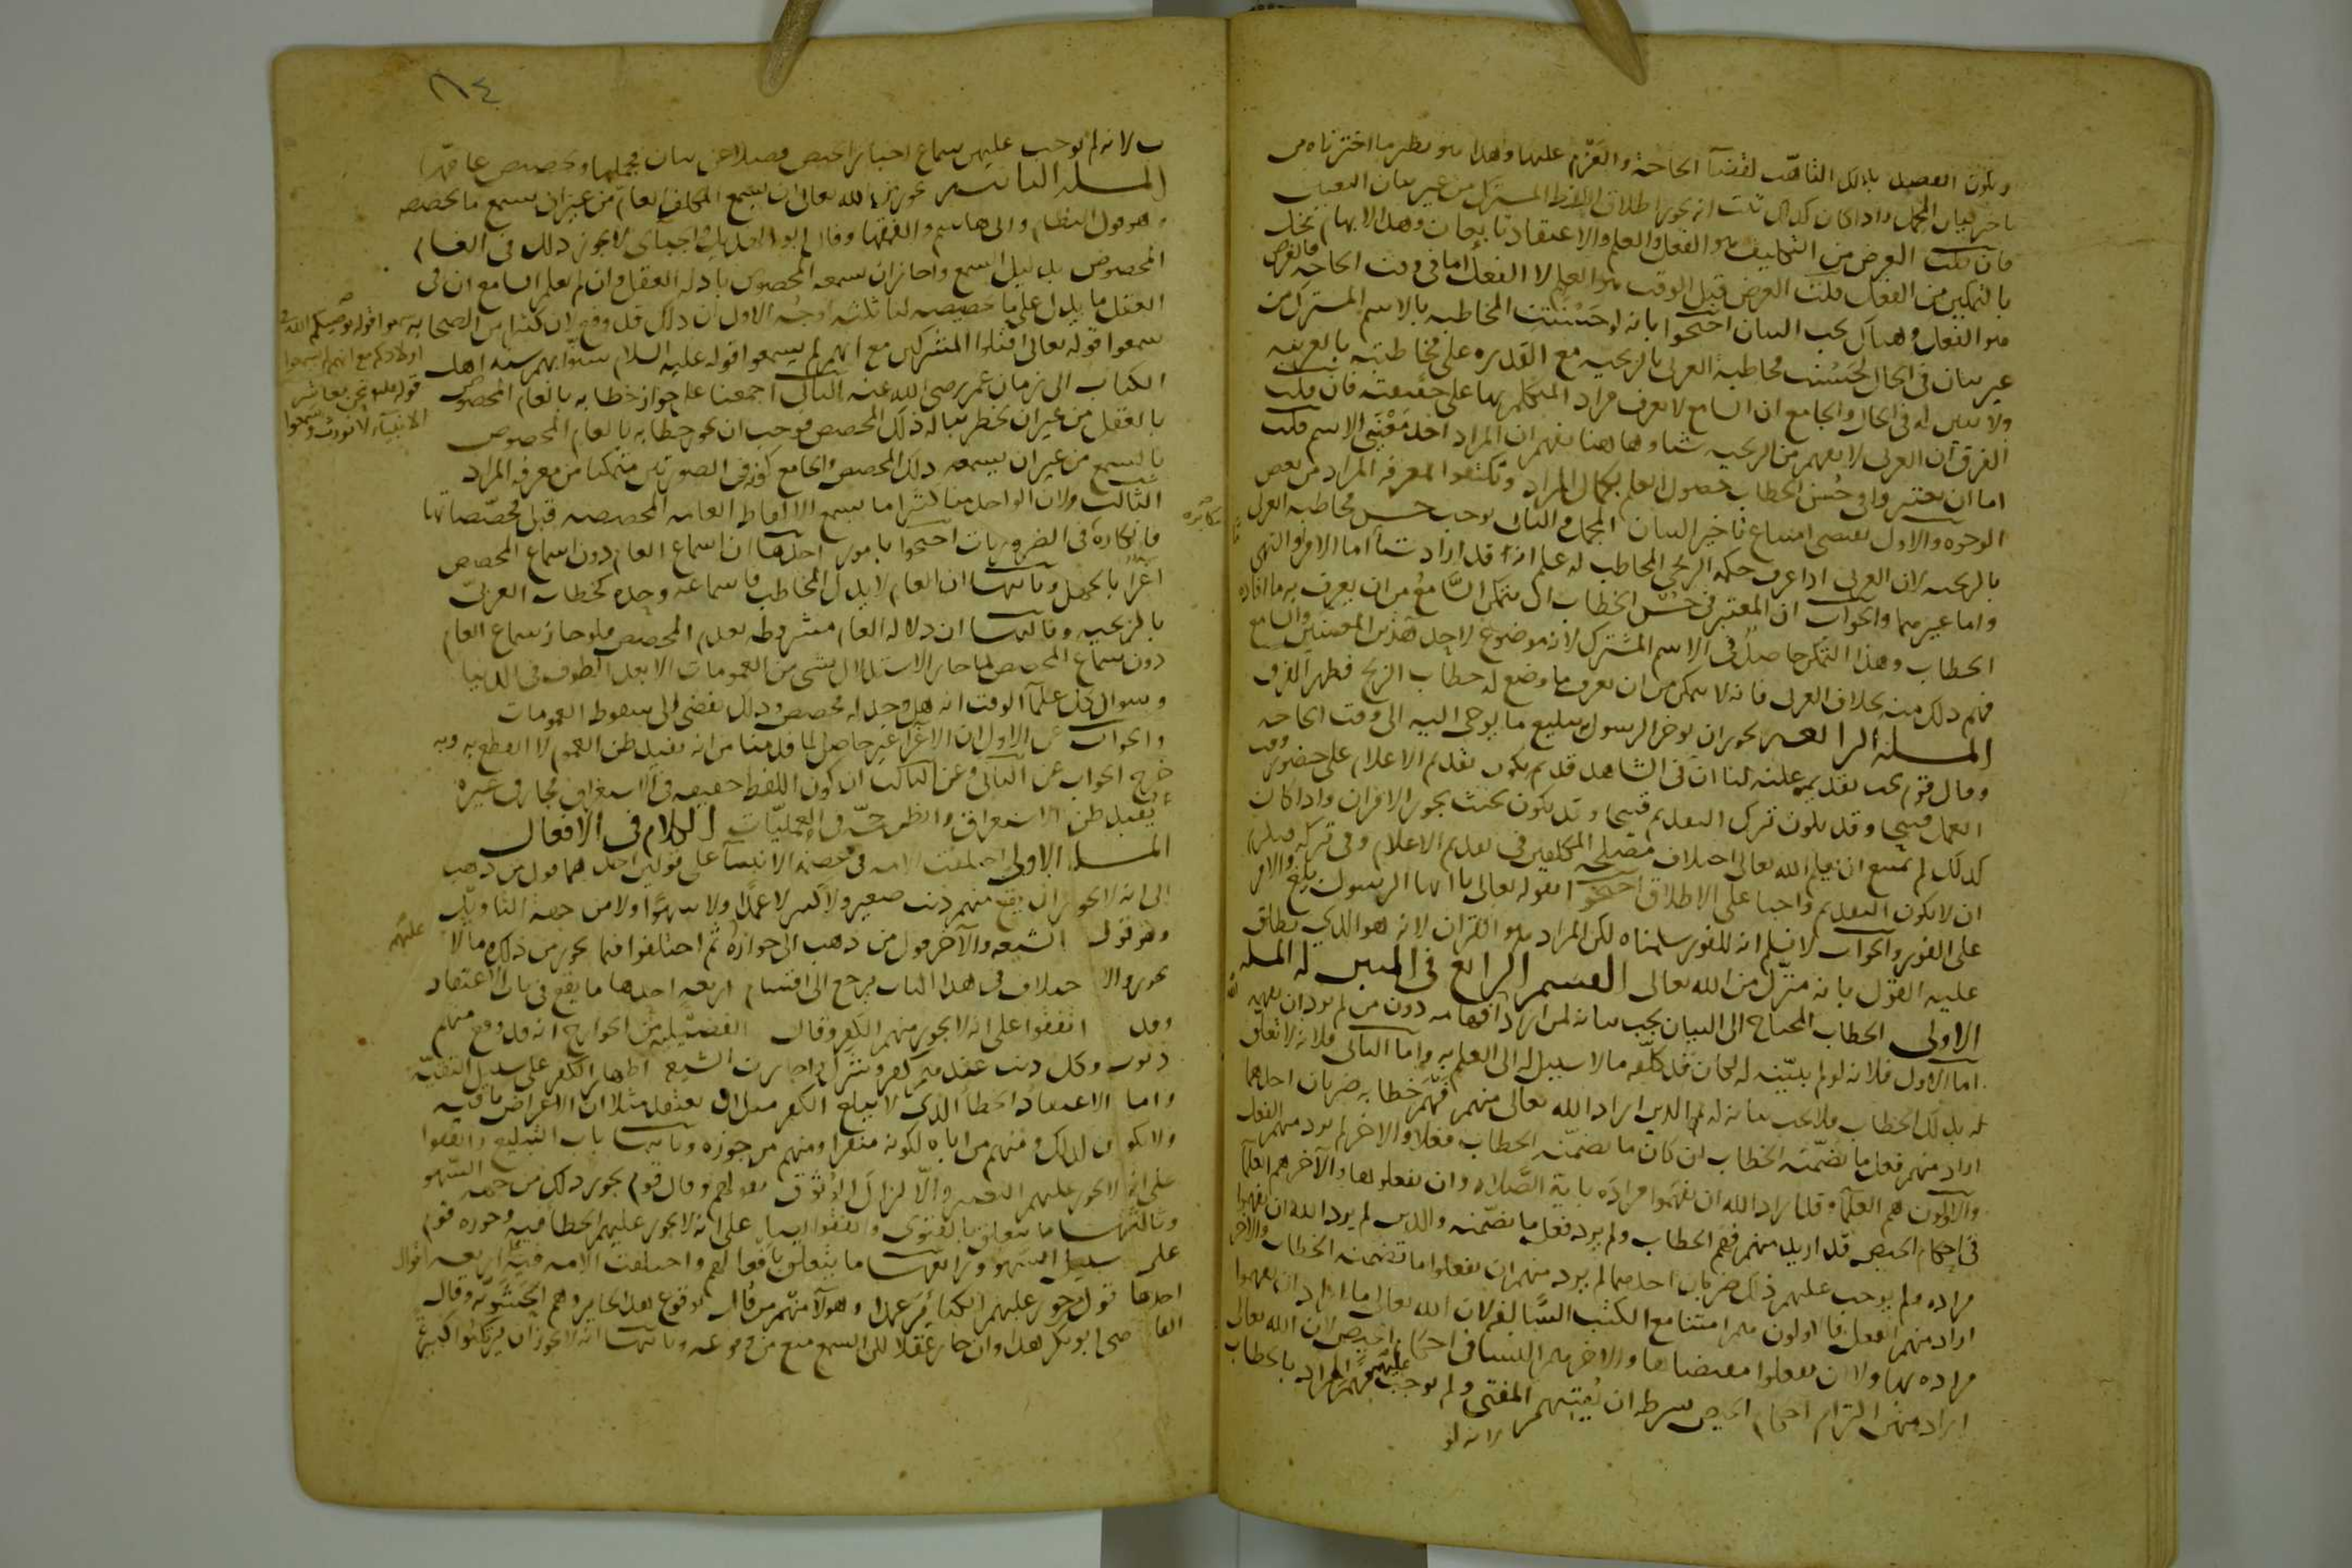 ويكون القصد بذلك التأهب لقضآ الحاجة والعزم عليها وهذا هو نظير ما اخترناه من
تاخير بيان المجمل واذا كان كذلك ثبت انه يجوز اطلاق اللفظ المشترك من غير بيان التعيين
فان قلت الغرض من التكليف هو الفعل والعلم والاعتقاد تابعان وهذا الابهام مخل
بالتمكين من الفعل قلت الغرض قبل الوقت هو العلم لا الفعل اما في وقت الحاجة فالغرض
هو الفعل وهناك يجب البيان احتجوا بانه لو حسنت المخاطبة بالاسم المشترك من
غير بيان في الحال لحسنت مخاطبة العربي بالزنجيه مع القدره على مخاطبته بالعربيه
ولا يبين له في الحال والجامع ان السامع لا يعرف مراد المتكلم بها على حقيقته فان قلت
الفرق ان العربي لا يفهم من الزنجيه شيا وها هنا يفهم ان المراد احد معنيي الاسم قلت
اما ان يعتبروا في حسن الخطاب حصول العلم بكمال المراد وتكتفوا لمعرفه المراد من بعض
الوجوه والاول يقتضي امتناع تاخير البيان المجمل والثاني يوجب حسن مخاطبه العربي
بالزنجيه لان العربي اذا عرف حكمه الزنجي المخاطب له علم انه قد اراد شيأ اما الامر او النهي
واما غيرهما والجواب ان المعتبر في حسن الخطاب ان يتمكن السامع من ان يعرف به ما افاده
الخطاب وهذا التمكن حاصل في الاسم المشترك لانه موضوع لاجل هذين المعنيين والسامع
فهم ذلك منه بخلاف العربي فانه لا يتمكن من ان يعرف ما وضع له خطاب الزنج فظهر الفرق
المسله الرابعه يجوز ان يوخر الرسول تبليغ ما يوحى اليه الى وقت الحاجه
وقال قوم يجب تقديمه علينه لنا ان في الشاهد قد يكون تقديم الاعلام على حضور وقت
العمل قبيحا وقد يكون ترك التقديم قبيحا وقد يكون بحيث يجوز الامران واذا كان
كذلك لم يمتنع ان يعلم الله تعالى اختلاف مصلحه المكلفين في تقديم الاعلام وفي تركه فيلزم
ان لا يكون التقديم واجبا على الاطلاق احتجوا بقوله تعالى يا ايها الرسول بلغ والامر
على الفور والجواب لا نسلم انه للفور سلمناه لكن المراد هو القران لانه هو الذي يطلق
عليه القول بانه منزل من الله تعالى القسم الرابع في المبين له المسله
الاولى الخطاب المحتاج الى البيان يجب بيانه لمن اراد افهامه دون من لم يرد ان يفهمه
اما الاول فلانه لو لم يبينه له لكان قد كلفه ما لا سبيل له الى العلم به واما الثاني فلانه لا تعلق
له بذلك الخطاب فلا يجب بيانه له ثم الذين اراد الله تعالى منهم فهم خطابه ضربان احدهما
اراد منهم فعل ما تضمنه الخطاب ان كان ما تضمنه الخطاب فعلا والاخر لم يرد منهم الفعل
والاولون هم العلمآ وقد اراد الله ان يفهموا مراده باية الصلاه وان يفعلوها والآخر هم العلمآ
في احكام الحيض قد اريد منهم فهم الخطاب ولم يرد فعل ما تضمنه والذين لم يرد الله ان يفهموا
مراده ولم يوجب عليهم ذلك ضربان احدهما لم يرد منهم ان يفعلوا ما تضمنه الخطاب والاخر
اراد منهم الفعل فالاولون هم امتنا مع الكتب السالفه لان الله تعالى ما اراد ان يفهموا
مراده بها ولا ان يفعلوا مقتضاها والاخر هم النسا في احكام الحيض لان الله تعالى
اراد منهن التزام احكام الحيض بشرط ان يفتيهم المفتي ولم يوجب عليهم فهم المراد بالخطاب
لانه لو
٨٤
لانه لم يوجب عليهن سماع اخبار الحيض فضلا عن بيان مجملها وتخصيص عامها
المسله الثانيه يجوز من الله تعالى ان يسمع المكلف العام من غير ان يسمع ما يخصصه
وهو قول النظام وابي هاشم والفقها وقال ابو الهذيل والجبائي لا يجوز ذلك في العام
المخصوص بدليل السمع واجازا ان يسمعه المخصوص بادله العقل وان لم يعلم السامع ان في
العقل ما يدل على تخصيصه لنا ثلثه اوجه الاول ان ذلك قد وقع لان كثيرا من الصحابه
سمعوا قوله تعالى اقتلوا المشركين مع انهم لم يسمعوا قوله عليه السلام سنوا بهم سنه اهل
الكتاب الى زمان عمر رضي الله عنه الثاني اجمعنا على جواز خطابه بالعام المخصوص
بالعقل من غير ان يخطر بباله ذلك المخصص فوجب ان يجوز خطابه بالعام المخصوص
بالسمع من غير ان يسمعه ذلك المخصص والجامع كونه في الصورتين متمكنا من معرفه المراد
الثالث ولان الواحد منا كثيرا ما يسمع الالفاظ العامه المخصصه قبل مخصصاتها
فانكاره في الضروريات احتجوا بامور احدها ان اسماع العام دون اسماع المخصص
اغرآ بالجهل وثانيها ان العام لا يدل المخاطب فاسماعه وحده كخطاب العربي
بالزنجيه وثالثها ان دلاله العام مشروطه بعدم المخصص فلو جاز سماع العام
دون سماع المخصص لما جاز الاستدلال بشي من العمومات الا بعد الطوف في الدنيا
وسوال كل علمآ الوقت انه هل وجد له مخصص وذلك يفضي الى سقوط العمومات
والجواب عن الاول ان الاغرآ غير حاصل لما قدمنا من انه يفيد ظن العموم لا القطع به وبه
خرج الجواب عن الثاني وعن الثالث ان كون اللفظ حقيقه في الاستغراق مجاز في غيره
يفيد ظن الاستغراق والظن حجه في العمليات الكلام في الافعال
المسله الاولى اختلفت الامه في عصمه الانبيآ على قولين احدهما قول من ذهب
الى انه لا يجوز ان يقع منهم ذنب صغير ولا كبير لا عمدا ولا سهوا ولا من جهه التاويل
وهو قول الشيعه والآخر قول من ذهب الى جوازه ثم اختلفوا فيما يجوز من ذلك وما لا
يجوز والاختلاف في هذا الباب يرجع الى اقسام اربعه احدها ما يقع في باب الاعتقاد
وقد اتفقوا على انه لا يجوز منهم الكفر وقالت الفضيليه من الخوارج انه قد وقع منهم
ذنوب وكل ذنب عندهم كفر وشرك واجازت الشيعه اظهار الكفر على سبيل التقيه
واما الاعتقاد الخطأ الذي لا يبلغ الكفر مثل ان يعتقد مثلا ان الاعراض باقيه
ولا يكون كذلك فمنهم من اباه لكونه منفرا ومنهم من جوزه وثانيها باب التبليغ واتفقوا
على انه لا يجوز عليهم التغيير والا لزال الوثوق بقولهم وقال قوم يجوز ذلك من جهه السهو
وثالثها ما يتعلق بالفتوى واتفقوا ايضا على انه لا يجوز عليهم الخطا فيه وجوزه قوم
على سبيل السهو ورابعها ما يتعلق بافعالهم واختلفت الامه فيه اربعه اقوال
احدها قول من جوز عليهم الكبائر عمدا وهولآ منهم من قال بوقوع هذا الجايز وهم الحشويه وقال
القاضي ابو بكر هذا وان جاز عقلا لكن السمع منع من وقوعه وثانيها انه لا يجوز ان يرتكبوا كبيره
سمعوا قوله يوصيكم الله في
اولادكم مع انهم لم يسمعوا
قوله عليه نحن معاشر
الانبيآء لا نورث وسمعوا
مكابره
عليهم